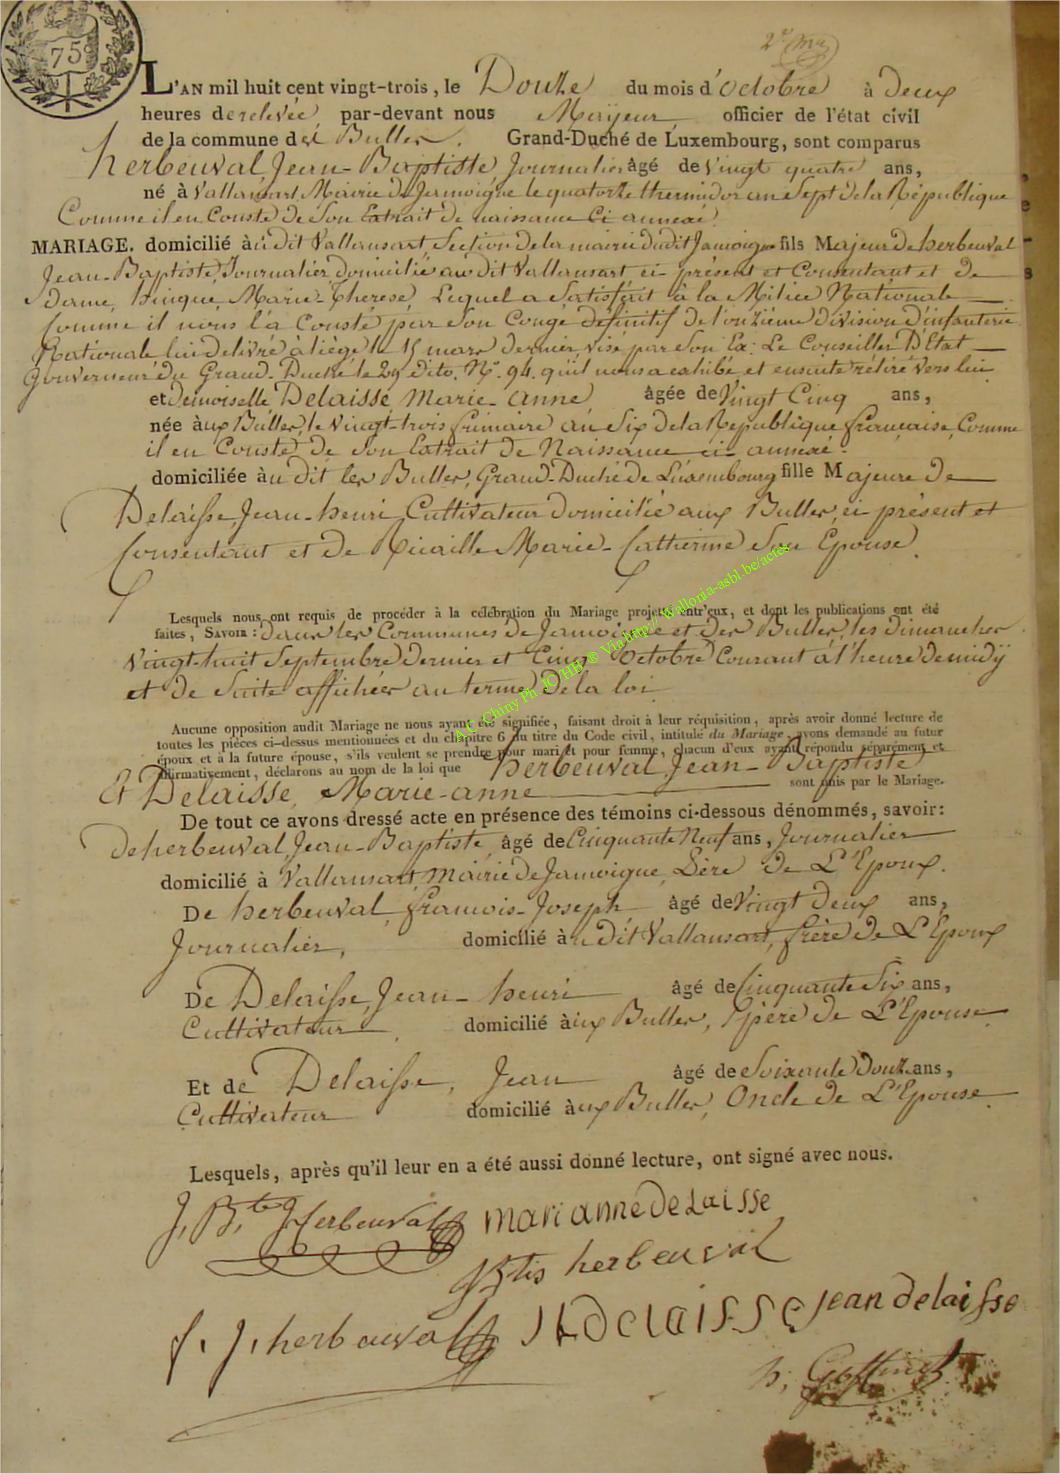 75
L'AN mil huit cent vingt-trois, le Douze du mois d'octobre à deux
heures de relevée, par-devant nous Mayeur officier de l'état civil
de la commune des Bulles, Grand-Duché de Luxembourg, sont comparus
herbeuval, Jean-Baptiste, Journalier âgé de vingt quatre ans,
né à Vallansart, Mairie de Jamoigne le quatorze thermidor an Sept de la République
Comme il en Conste de Son Extrait de naissance Ci annexé.
MARIAGE. domicilié à udit Vallansart, Section de la mairie dudit Jamoigne fils Majeur de herbeuval
Jean-Baptiste, Journalier domicilié au dit Vallansart ci-présent et Consentant et de
dame, hinque, Marie-Thérèse, Lequel a Satisfait à la Milice Nationale
Comme il nous l'a Consté par Son Congé définitif de l'onzième division d'infanterie
Nationale lui delivré à liége le 15 mars dernier, visé par Son Ex. Le Conseiller D'Etat
Gouverneur du Grand-Duché le 29 dito. N° 94. qu'il nous a exhibé, et ensuite rétiré vers lui
et demoiselle Delaisse, Marie-Anne, âgée de Vingt Cinq ans,
née à ux Bulles, le Vingt-trois frimaire an Six de la République française, Comme
il en Conste de Son Extrait de Naissance ci-annexé.
domiciliée à u dit les Bulles, Grand-Duché de Luxembourg fille Majeure de
Delaisse, Jean-henri, Cultivateur domicilié aux Bulles, ci présent et
Consentant et de Ricaille Marie-Catherine Son Epouse.
Lesquels nous ont requis de procéder à la célébration du Mariage projetté entr'eux, et dont les publications ont été
faites, SAVOIR: dans les Communes de Jamoigne et des Bulles, les dimanches
Vingt-huit Septembre Dernier et Cinq Octobre Courant à l'heure de midÿ
et de Suite affichées au terme de la loi
Aucune opposition audit Mariage ne nous ayant été signifiée, faisant droit à leur réquisition, après avoir donné lecture de
toutes les pièces ci-dessus mentionnées et du chapitre 6 du titre du Code civil, intitulé du Mariage, avons demandé au futur
époux et à la future épouse, s'ils veulent se prendre pour mari et pour femme, chacun d'eux ayant répondu séparément et
affirmativement, déclarons au nom de la loi que herbeuval, Jean-Baptiste
Et Delaisse, Marie-anne sont unis par le Mariage.
De tout ce avons dressé acte en présence des témoins ci-dessous dénommés, savoir:
De herbeuval, Jean-Baptiste, âgé de Cinquante Neuf ans, Journalier
domicilié à Vallansart, Mairie de Jamoigne, Père de L'Epoux.
De herbeuval, françois-Joseph âgé de Vingt Deux ans,
Journalier, domicilié à u dit Vallansart, frère de L'Epoux
De Delaisse, Jean-henri âgé de Cinquante Six ans,
Cultivateur, domicilié à ux Bulles, père de L'Epouse.
Et de Delaisse, Jean âgé de Soixante Douze ans,
Cultivateur domicilié à ux Bulles, Oncle de L'Epouse.
Lesquels, après qu'il leur en a été aussi donné lecture, ont signé avec nous.
J, B,te Herbeuval marianne DeLaisse
JBtis herbeuval
f. J, herbeuval JhDelaisse jean delaisse
h, Goffinet
AC Chiny Ph. JC/HH ® Via http://Wallonia-asbl.be/actes